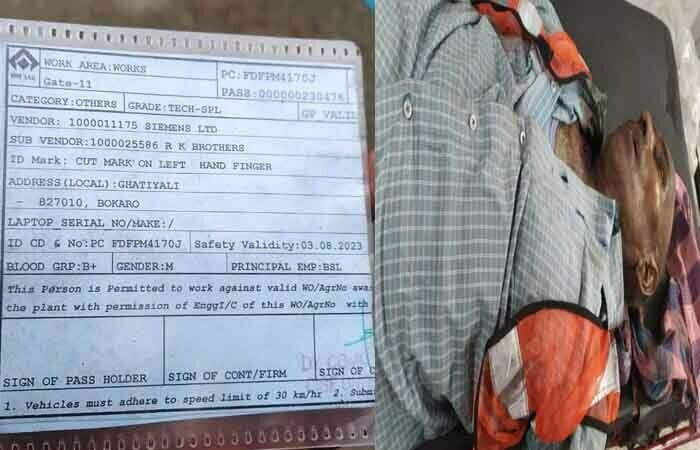 WORK AREA:WORKS
Gate-11
PC:FDFPM4170J
PASS:000000230476
CATEGORY:OTHERS GRADE:TECH-SPL GP VALID
VENDOR: 1000011175 SIEMENS LTD
SUB VENDOR:1000025586 R K BROTHERS
ID Mark: CUT MARK ON LEFT HAND FINGER
ADDRESS(LOCAL):GHATIYALI
- 827010, BOKARO
LAPTOP SERIAL NO/MAKE:/
ID CD & No:PC FDFPM4170J Safety Validity:03.08.2023
BLOOD GRP:B+ GENDER:M PRINCIPAL EMP:BSL
This Person is Permitted to work against valid WO/AgrNo
the plant with permission of EnggI/C of this WO/AgrNo with
SIGN OF PASS HOLDER SIGN OF CONT/FIRM SIGN OF
1. Vehicles must adhere to speed limit of 30 km/hr 2.